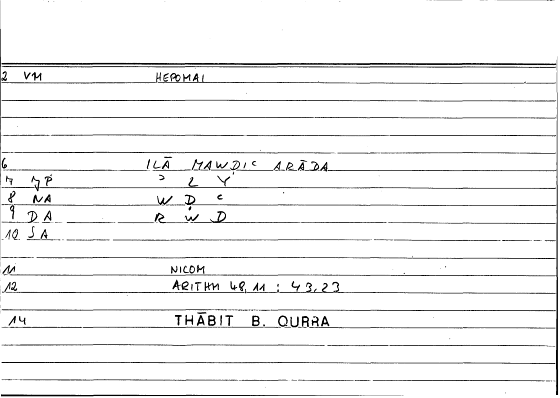 2 VM HEPOMAI
6 ILĀ MAWḌIʿ ARĀDA
7 MP ʾ L Y
8 NA W Ḍ ʿ
9 DA R W D
10 SA
11 NICOM
12 ARITHM 48,11 : 43,23
14 THĀBIT B. QURRA